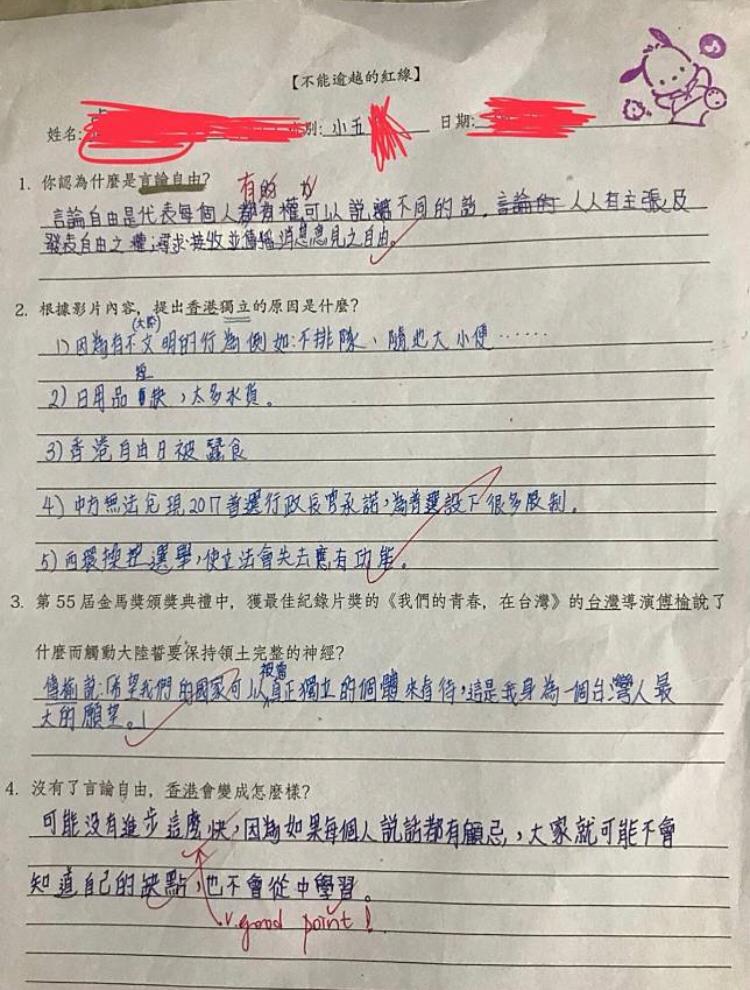 【不能逾越的紅線】
姓名: 別: 小五 日期:
1. 你認為什麼是言論自由?
有的 力
言論自由是代表每個人都有權可以說不同的話, 言論的 人人有主張及
發表自由之權;尋求接收並傳播消息意見之自由。
2. 根據影片內容,提出香港獨立的原因是什麼?
(大陸)
1) 因為有不文明的行為例如:不排隊、隨地大小便……
2) 日用品短缺,太多水貨。
3) 香港自由日被蠶食
4) 中方無法兌現2017普選行政長官承諾,為普選設下很多限制。
5) 西環操控選舉,使立法會失去應有功能。
3. 第 55 屆金馬獎頒獎典禮中,獲最佳紀錄片獎的《我們的青春,在台灣》的台灣導演傅榆說了
什麼而觸動大陸誓要保持領土完整的神經?
傅榆說:「希望我們的國家可以被當真正獨立的個體來看待,這是我身為一個台灣人最
大的願望。」
4. 沒有了言論自由,香港會變成怎麼樣?
可能没有進步這麼快,因為如果每個人說話都有顧忌,大家就可能不會
知道自己的缺點,也不會從中學習。
v. good point!